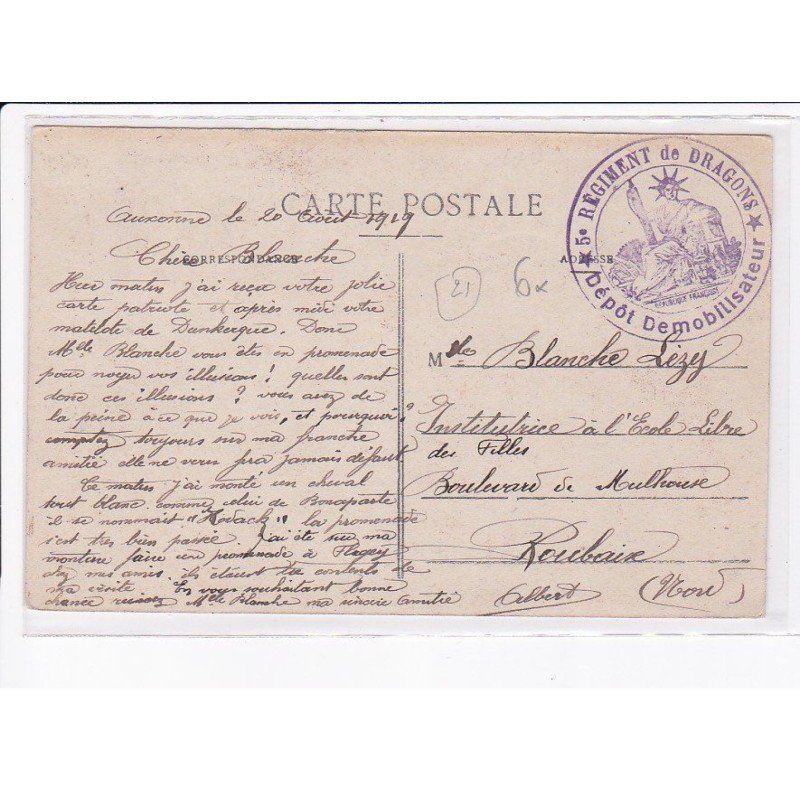 CARTE POSTALE
Auxonne le 20 Août 1919
CORRESPONDANCE
ADRESSE
Chère Blanche
Hier matin j'ai reçu votre jolie
carte patriote et après midi votre
matelote de Dunkerque. Donc
Mlle Blanche vous êtes en promenade
pour noyer vos illusions! quelles sont
donc ces illusions? vous avez de
la peine à ce que je vois, et pourquoi?
comptez toujours sur ma franche
amitié elle ne vous fera jamais défaut
Ce matin j'ai monté un cheval
tout blanc comme celui de Bonaparte
il se nommait "Kodack" la promenade
s'est très bien passée. J'ai été sur ma
monture faire une promenade à Flagey
chez mes amis. ils étaient contents de
ma visite. En vous souhaitant bonne
chance recevez Mlle Blanche ma sincère amitié
Albert
21
6x
5e RÉGIMENT de DRAGONS
Dépôt Démobilisateur
RÉPUBLIQUE FRANÇAISE
Mlle Blanche Lézy
Institutrice à l'Ecole Libre
des Filles
Boulevard de Mulhouse
Roubaix
(Nord)